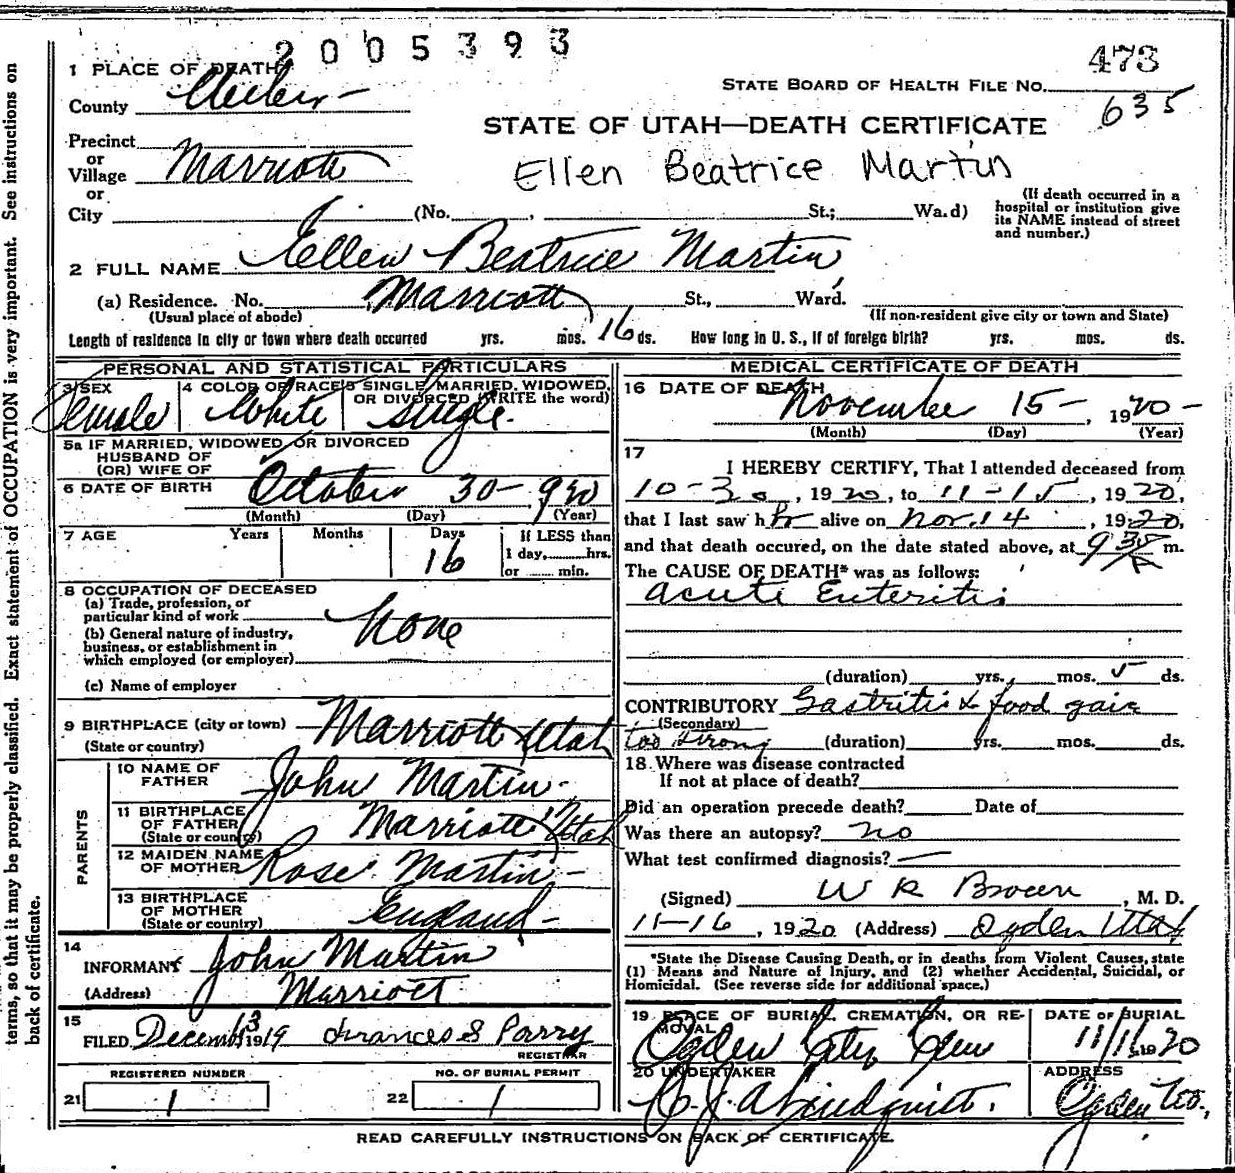 2005393
473
635
1 PLACE OF DEATH
County Weber
STATE BOARD OF HEALTH FILE NO.
STATE OF UTAH—DEATH CERTIFICATE
Ellen Beatrice Martin
Precinct
or
Village Marriott
or
City (No. , St.; Wa.d)
(If death occurred in a hospital or institution give its NAME instead of street and number.)
2 FULL NAME Ellen Beatrice Martin
(a) Residence. No. Marriott St., Ward.
(Usual place of abode) (If non-resident give city or town and State)
Length of residence in city or town where death occurred yrs. mos. 16 ds. How long in U. S., if of foreign birth? yrs. mos. ds.
PERSONAL AND STATISTICAL PARTICULARS
3 SEX Female
4 COLOR OR RACE White
5 SINGLE, MARRIED, WIDOWED, OR DIVORCED (WRITE the word) Single.
5a IF MARRIED, WIDOWED, OR DIVORCED
HUSBAND OF
(OR) WIFE OF
6 DATE OF BIRTH October 30- 920
(Month) (Day) (Year)
7 AGE Years Months Days 16
If LESS than
1 day, hrs.
or min.
8 OCCUPATION OF DECEASED
(a) Trade, profession, or
particular kind of work None
(b) General nature of industry,
business, or establishment in
which employed (or employer)
(c) Name of employer
9 BIRTHPLACE (city or town) Marriott Utah
(State or country)
PARENTS
10 NAME OF
FATHER John Martin
11 BIRTHPLACE
OF FATHER Marriott Utah
(State or country)
12 MAIDEN NAME
OF MOTHER Rose Martin
13 BIRTHPLACE
OF MOTHER England
(State or country)
14
INFORMANT John Martin
(Address) Marriott
15
FILED December 3 1919 Frances S Parry
REGISTRAR
REGISTERED NUMBER
21 1
NO. OF BURIAL PERMIT
22 1
MEDICAL CERTIFICATE OF DEATH
16 DATE OF DEATH November 15-, 1920-
(Month) (Day) (Year)
17
I HEREBY CERTIFY, That I attended deceased from
10-30, 1920, to 11-15, 1920,
that I last saw her alive on Nov. 14, 1920,
and that death occured, on the date stated above, at 9 30 A m.
The CAUSE OF DEATH* was as follows:
Acute Enteritis
(duration) yrs. mos. 5 ds.
CONTRIBUTORY Gastritis & food
(Secondary)
too strong (duration) yrs. mos. ds.
18 Where was disease contracted
If not at place of death?
Did an operation precede death? Date of
Was there an autopsy? no
What test confirmed diagnosis? —
(Signed) W R Brown, M. D.
11-16, 1920 (Address) Ogden Utah
*State the Disease Causing Death, or in deaths from Violent Causes, state
(1) Means and Nature of Injury, and (2) whether Accidental, Suicidal, or
Homicidal. (See reverse side for additional space.)
19 PLACE OF BURIAL, CREMATION, OR REMOVAL
Ogden City Cem
DATE OF BURIAL
11/16 1920
20 UNDERTAKER
ADDRESS
Ogden
READ CAREFULLY INSTRUCTIONS ON BACK OF CERTIFICATE.
terms, so that it may be properly classified. Exact statement of OCCUPATION is very important. See instructions on
back of certificate.